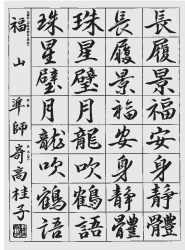 長履景福安身靜體
長履景福安身靜體
珠星璧月龍吹鶴語
珠星璧月龍吹鶴語
福山 準師 高桂子